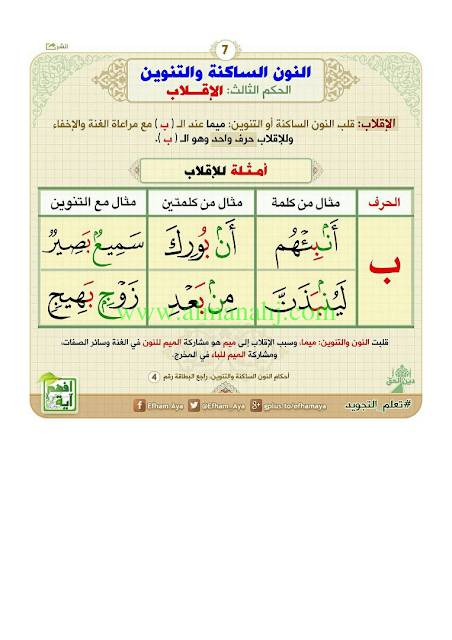 انشر
7
النون الساكنة والتنوين
الحكم الثالث: الإقـلاب
الإقلاب: قلب النون الساكنة أو التنوين: ميما عند الـ ( ب ) مع مراعاة الغنة والإخفاء
وللإقلاب حرف واحد وهو الـ ( ب ).
أمـثـلة للإقلاب
الحرف مثال من كلمة مثال من كلمتين مثال مع التنوين
ب
أَنۢبِئۡهُم أَنۢ بُورِكَ سَمِيعُۢ بَصِيرٞ
لَيُنۢبَذَنَّ مِنۢ بَعۡدِ زَوۡجِۭ بَهِيجٖ
www.almanahj.com
قلبت النون والتنوين: ميما، وسبب الإقلاب إلى ميم هو مشاركة الميم للنون في الغنة وسائر الصفات،
ومشاركة الميم للباء في المخرج.
أحكام النون الساكنة والتنوين، راجع البطاقة رقم 4
افهم آية
دين الحق
#تعلم_التجويد
gplus.to/efhamaya
@Efham_Aya
Efham_Aya